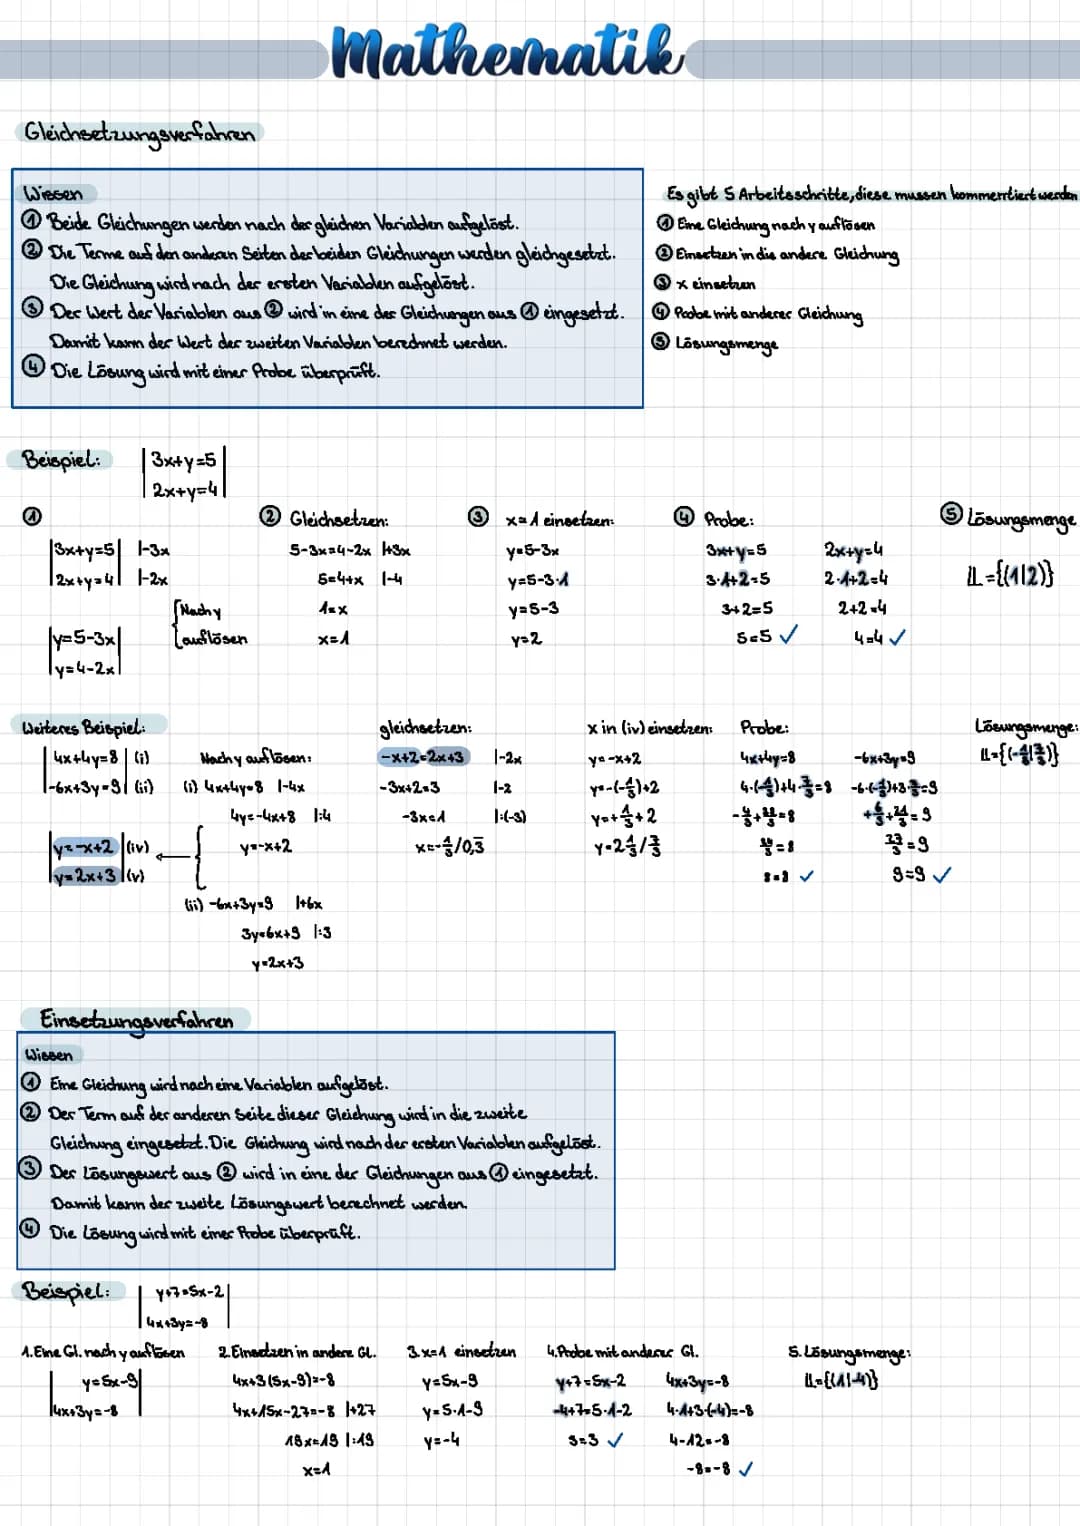 Mathematik
Gleichsetzungsverfahren
Wissen
① Beide Gleichungen werden nach der gleichen Variablen aufgelöst.
② Die Terme auf den anderen Seiten der beiden Gleichungen werden gleichgesetzt.
Die Gleichung wird nach der ersten Variablen aufgelöst.
③ Der Wert der Variablen aus ② wird in eine der Gleichungen aus ① eingesetzt.
Damit kann der Wert der zweiten Variablen berechnet werden.
④ Die Lösung wird mit einer Probe überprüft.
Es gibt 5 Arbeitsschritte, diese mussen kommentiert werden
① Eine Gleichung nach y auflösen
② Einsetzen in die andere Gleichung
③ x einsetzen
④ Probe mit anderer Gleichung
⑤ Lösungsmenge
Beispiel:
|3x+y=5|
|2x+y=4|
①
|3x+y=5| |-3x
|2x+y=4| |-2x
Nach y
auflösen
|y=5-3x|
|y=4-2x|
② Gleichsetzen:
5-3x=4-2x |+3x
5=4+x |-4
1=x
x=1
③ x=1 einsetzen:
y=5-3x
y=5-3·1
y=5-3
y=2
④ Probe:
3x+y=5 2x+y=4
3·1+2=5 2·1+2=4
3+2=5 2+2=4
5=5 ✓ 4=4 ✓
⑤ Lösungsmenge
𝕃={(1|2)}
Weiteres Beispiel:
|4x+4y=8| (i)
|-6x+3y=9| (ii)
|y=-x+2| (iv)
|y=2x+3| (v)
Nach y auflösen:
(i) 4x+4y=8 |-4x
4y=-4x+8 |:4
y=-x+2
(ii) -6x+3y=9 |+6x
3y=6x+9 |:3
y=2x+3
gleichsetzen:
-x+2=2x+3 |-2x
-3x+2=3 |-2
-3x=1 |:(-3)
x=-1/3 / 0,3̅
x in (iv) einsetzen:
y=-x+2
y=-(-1/3)+2
y=+1/3+2
y=2 1/3 / 7/3
Probe:
4x+4y=8 -6x+3y=9
4·(-1/3)+4·7/3=8 -6·(-1/3)+3·7/3=9
-4/3+28/3=8 +6/3+21/3=9
24/3=8 27/3=9
8=8 ✓ 9=9 ✓
Lösungsmenge:
𝕃={(-1/3|7/3)}
Einsetzungsverfahren
Wissen
① Eine Gleichung wird nach eine Variablen aufgelöst.
② Der Term auf der anderen Seite dieser Gleichung wird in die zweite
Gleichung eingesetzt. Die Gleichung wird nach der ersten Variablen aufgelöst.
③ Der Lösungswert aus ② wird in eine der Gleichungen aus ① eingesetzt.
Damit kann der zweite Lösungswert berechnet werden.
④ Die Lösung wird mit einer Probe überprüft.
Beispiel:
|y+7=5x-2|
|4x+3y=-8
1. Eine Gl. nach y auflösen
|y=5x-9|
|4x+3y=-8|
2. Einsetzen in andere GL.
4x+3(5x-9)=-8
4x+15x-27=-8 |+27
19x=19 |:19
x=1
3. x=1 einsetzen
y=5x-9
y=5·1-9
y=-4
4. Probe mit anderer Gl.
y+7=5x-2 4x+3y=-8
-4+7=5·1-2 4·1+3·(-4)=-8
3=3 ✓ 4-12=-8
-8=-8 ✓
5. Lösungsmenge:
𝕃={(1|-4)}